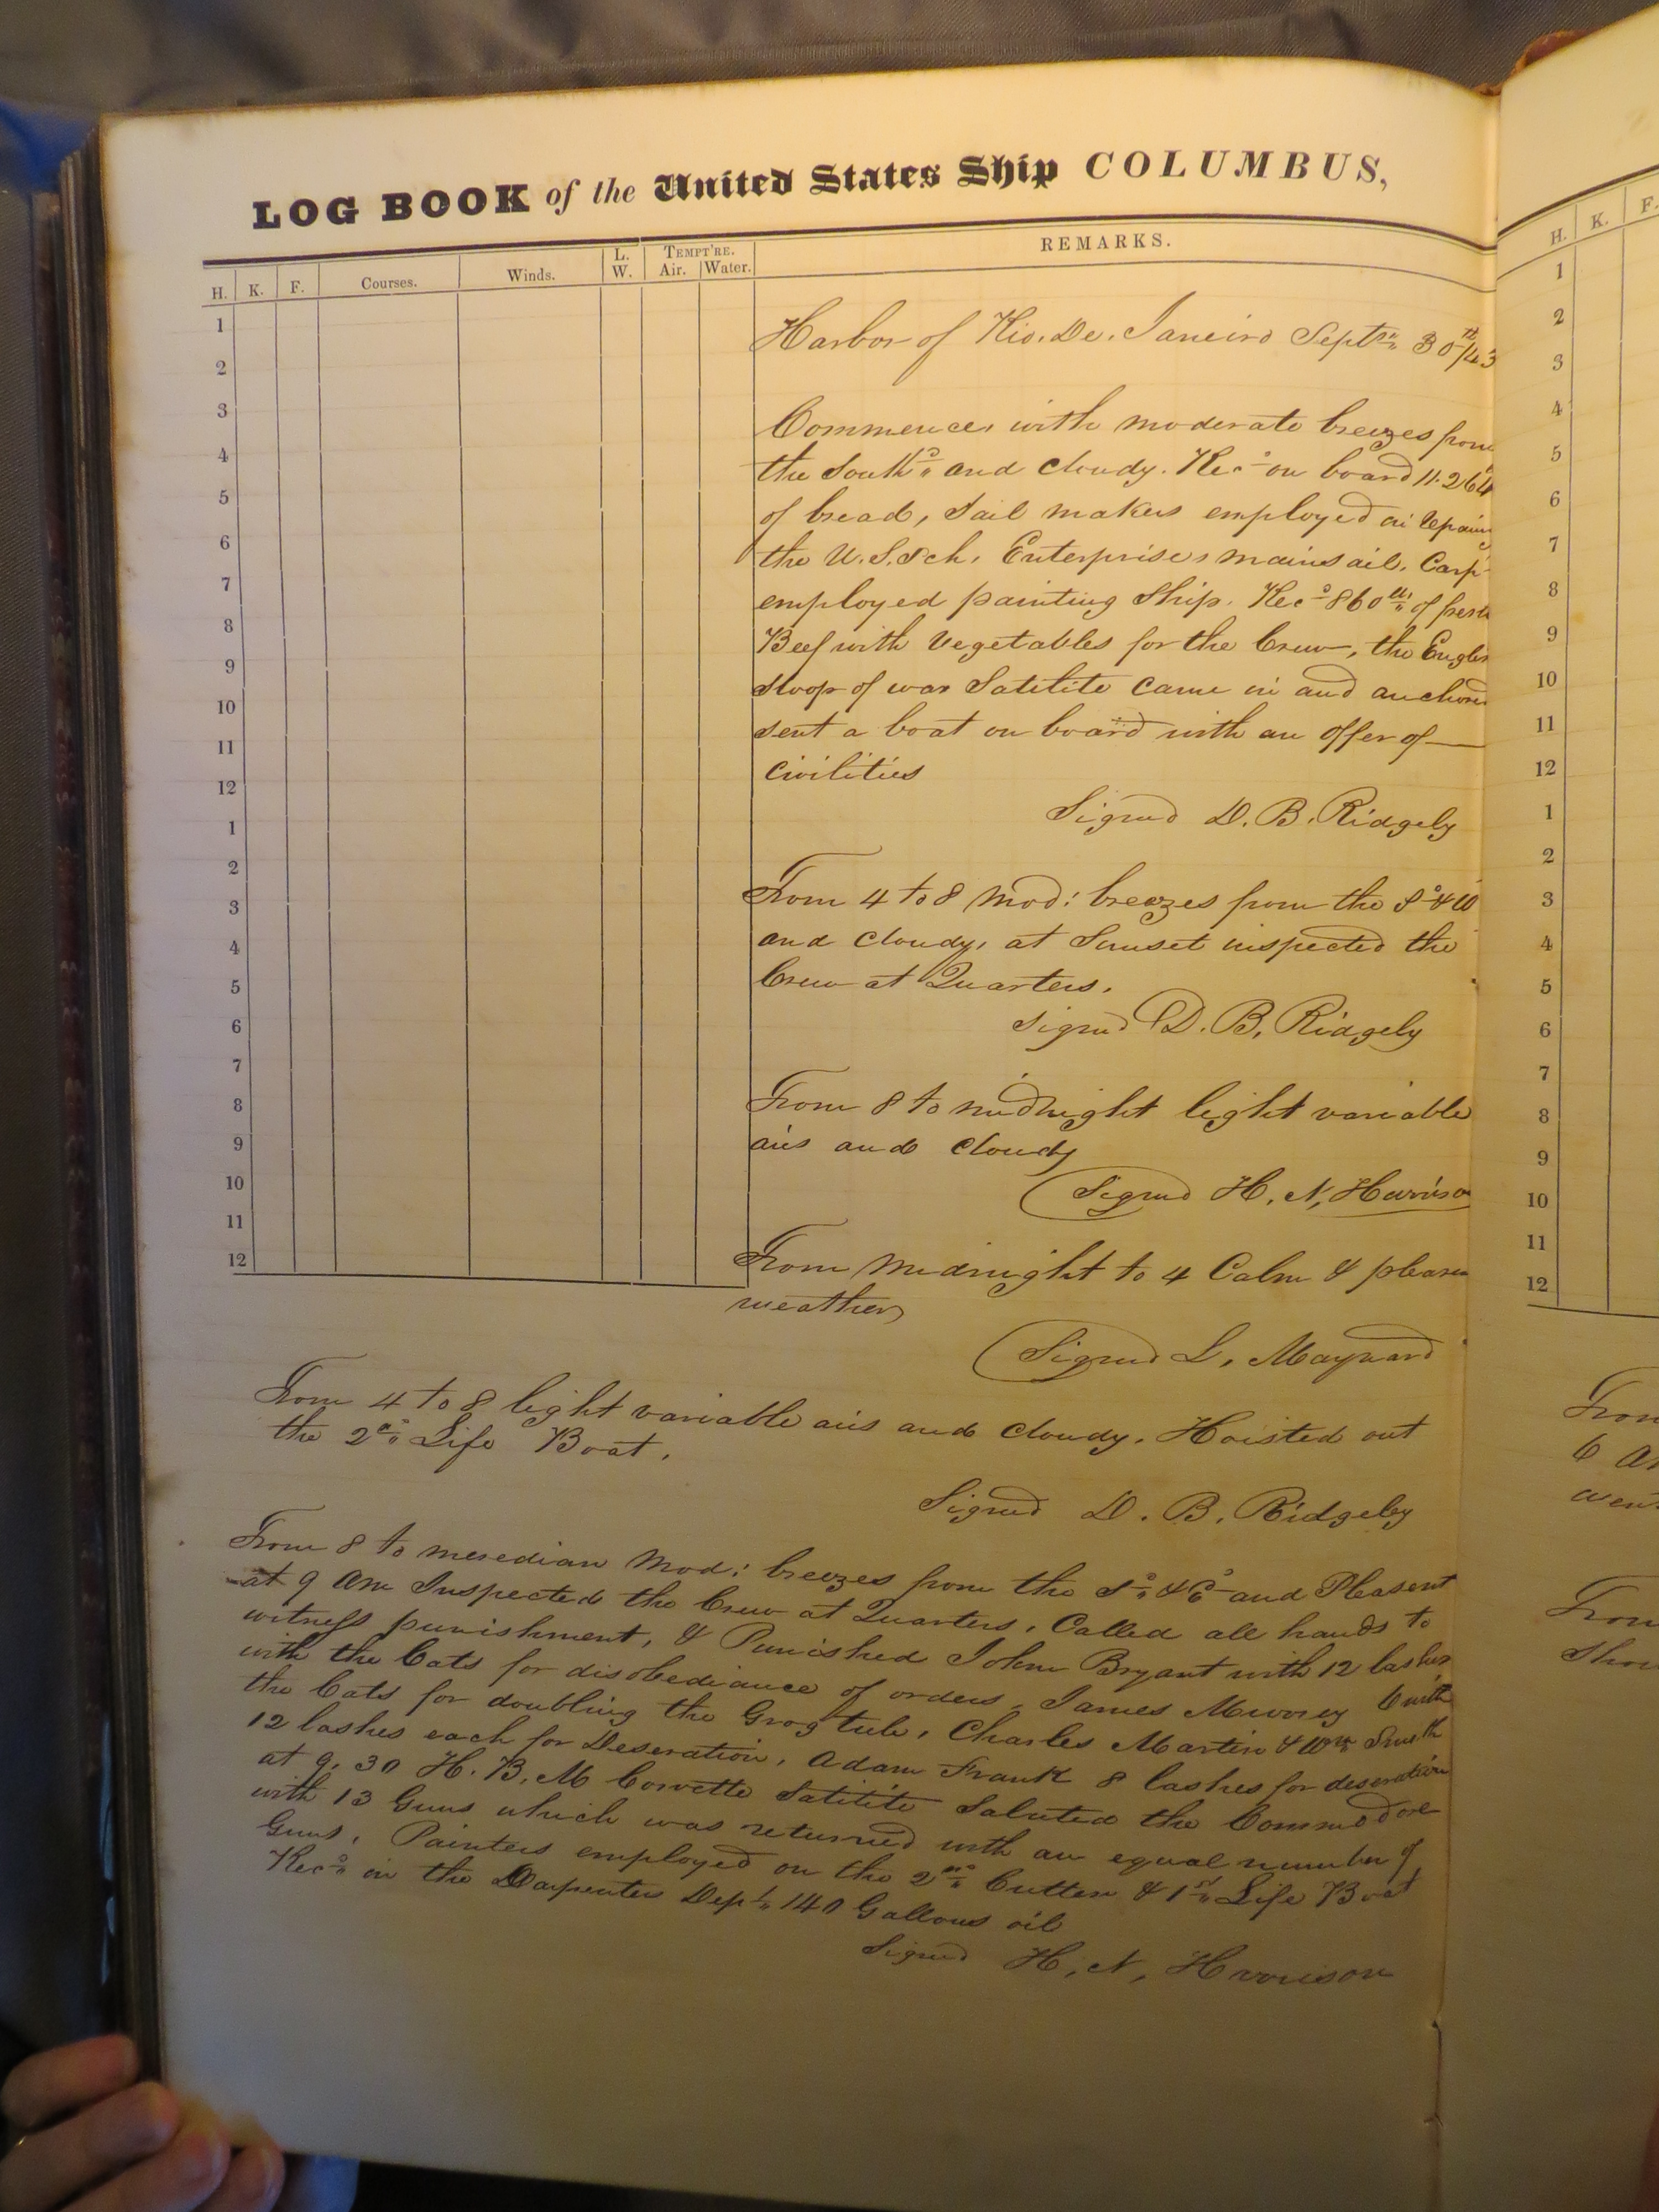 LOG BOOK of the United States Ship COLUMBUS,
H. K. F. Courses. Winds. L. W. TEMPT'RE. Air. Water. REMARKS.
1
2
3
4
5
6
7
8
9
10
11
12
1
2
3
4
5
6
7
8
9
10
11
12
Harbor of Rio. De. Janeiro Septr 30th/43
Commences with moderate breezes from
the Southd and cloudy. Recd on board 11.264
of bread, Sail makers employed on repairing
the U.S. Sch. Enterprises mainsail. Carp
employed painting Ship. Recd 860 lbs of fresh
Beef with Vegetables for the Crew, the English
Sloop of war Satelite came in and anchored
sent a boat on board with an offer of
civilities
Signed D. B. Ridgely
From 4 to 8 mod: breezes from the Sd & W
and cloudy, at Sunset inspected the
Crew at Quarters.
Signed D. B. Ridgely
From 8 to midnight light variable
airs and cloudy
Signed H. N. Harrison
From Midnight to 4 Calm & pleasan
weather
Signed L. Maynard
From 4 to 8 light variable airs and cloudy. Hoisted out
the 2nd Life Boat.
Signed D. B. Ridgeley
From 8 to meredian Mod: breezes from the Sd & Ed and Pleasent
at 9 Am Inspected the Crew at Quarters. Called all hands to
witness punishment, & Punished John Bryant with 12 lashes
with the Cats for disobediance of orders, James 6 with
the Cats for doubling the Grog tub, Charles Martin & Wm Smith
12 lashes each for Deseration, Adam Frank 8 lashes for deseration
at 9.30 H. B. M Corvette Satitite Saluted the Commodore
with 13 Guns which was returned with an equal number of
Guns. Painters employed on the 2nd Cutter & 1st Life Boat
Recd in the Carpenters Dept 140 Gallons oil
Signed H. N. Harrison
H. K. F.
1
2
3
4
5
6
7
8
9
10
11
12
1
2
3
4
5
6
7
8
9
10
11
12
From
6
From